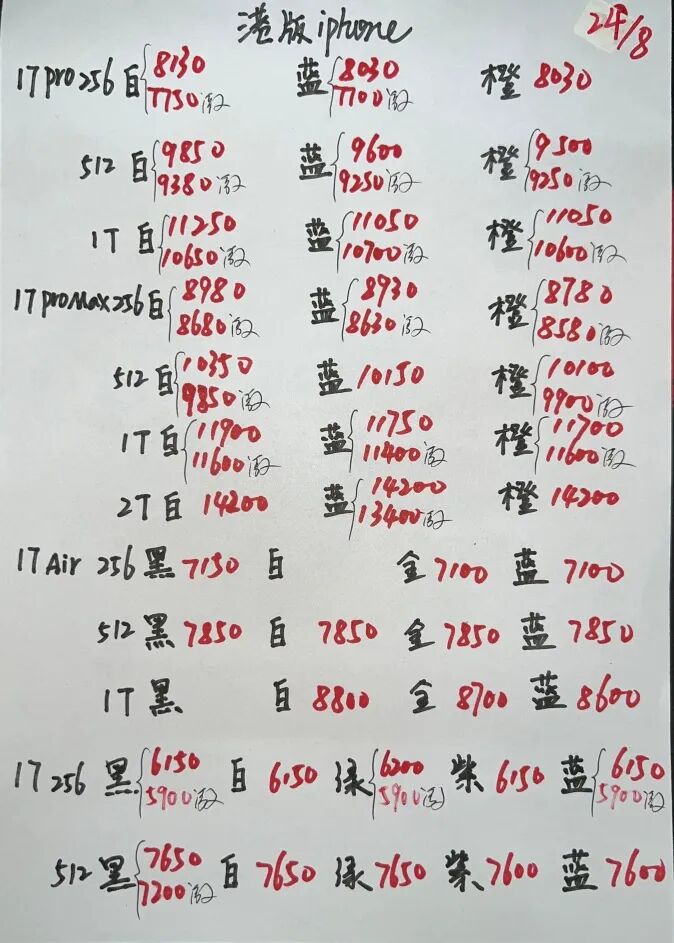 港版iphone
24/8
17pro256 白 8130 蓝 8030 橙 8030
7750激 7700激
512 白 9850 蓝 9600 橙 9500
9380激 9250激 9250激
1T 白 11250 蓝 11050 橙 11050
10650激 10700激 10600激
17proMax256 白 8980 蓝 8930 橙 8780
8680激 8630激 8580激
512 白 10350 蓝 10150 橙 10100
9850激 9900激
1T 白 11900 蓝 11750 橙 11700
11600激 11400激 11600激
2T 白 14200 蓝 14200 橙 14200
13400激
17Air 256 黑 7150 白 金 7100 蓝 7100
512 黑 7850 白 7850 金 7850 蓝 7850
1T 黑 白 8800 金 8700 蓝 8600
17 256 黑 6150 白 6150 绿 6200 紫 6150 蓝 6150
5900激 5900激 5900激
512 黑 7650 白 7650 绿 7650 紫 7600 蓝 7600
7200激